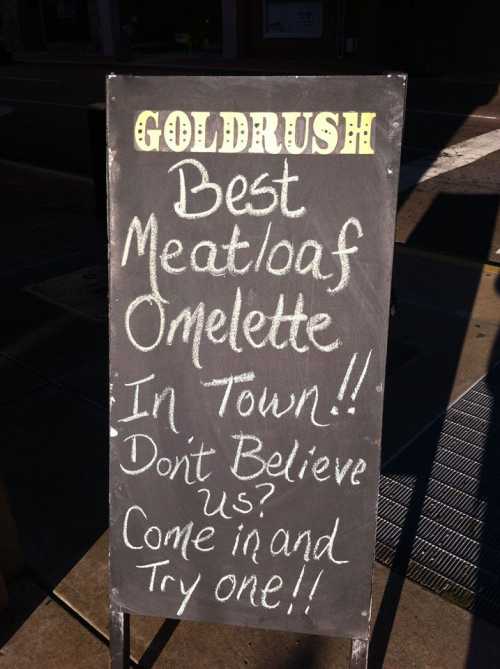 GOLDRUSH
Best
Meatloaf
Omelette
In Town!!
Don't Believe
us?
Come in and
Try one!!